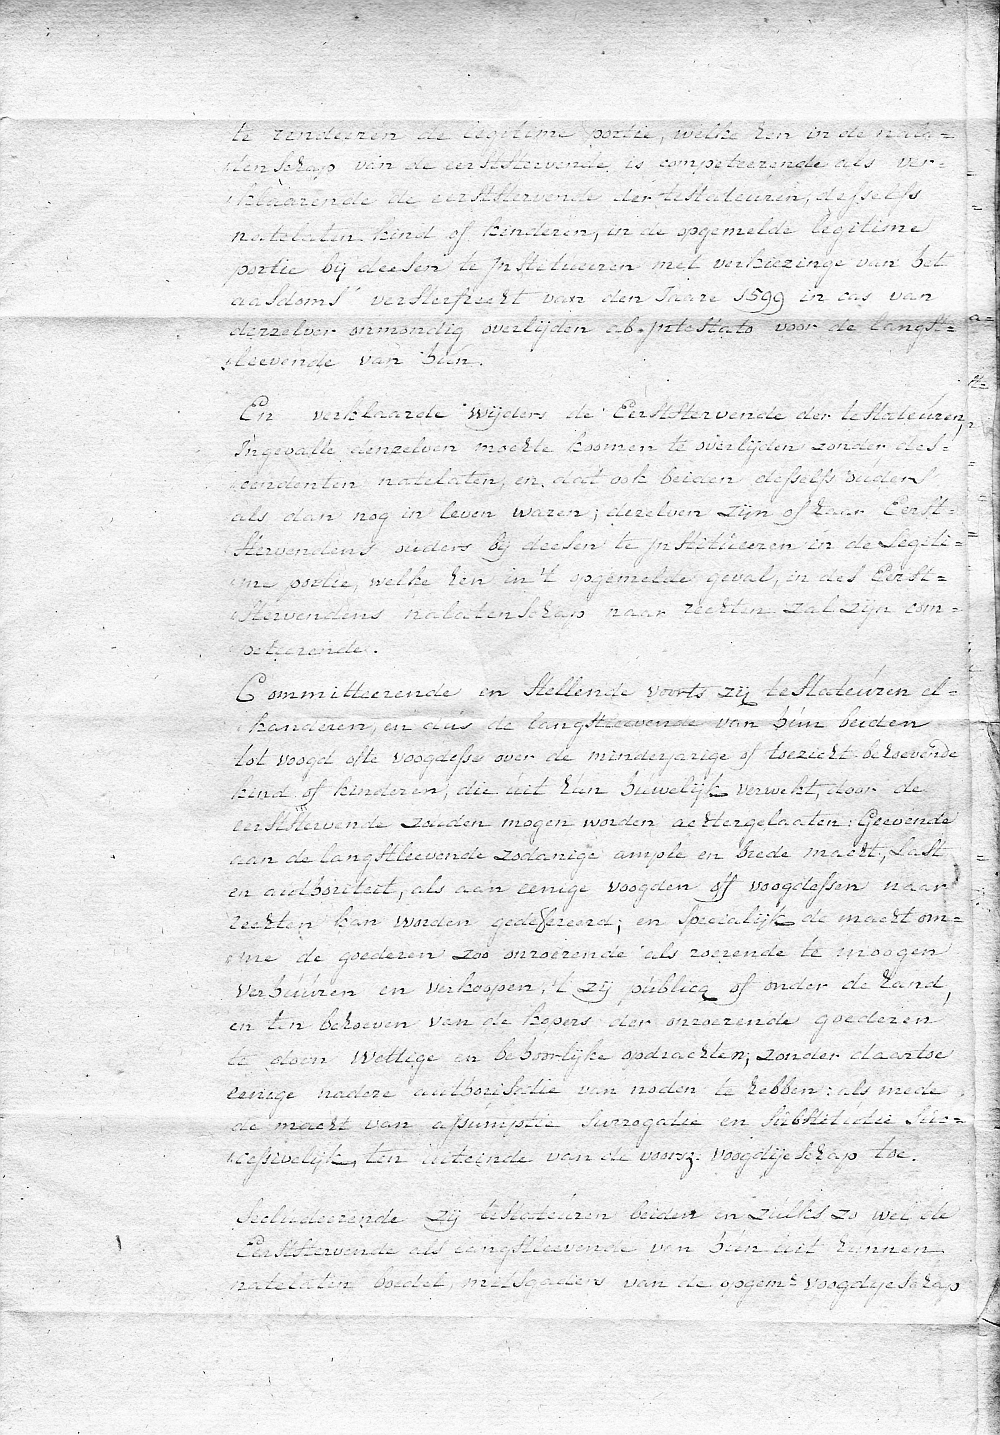 te rendeeren de legitime portie, welke hen in de nala=
tenschap van de eerststervende is competeerende als ver=
klaarende de eerststervende der testateuren, desselfs
natelaten kind of kinderen, in de opgemelde legitime
portie bij deesen te institueeren met verkiezinge van het
aasdoms versterfrecht van den Jaare 1599 in cas van
derzelver onmondig overlijden ab intestato voor de langst=
leevende van hun.
En verklaarde wijders de Eerststervende der testateuren,
Ingevalle denzelven mochte koomen te overlijden zonder des=
cendenten natelaten, en dat ook beiden desselfs ouders
als dan nog in leven waren; dezelven zijn of haar Eerst=
stervendens ouders bij deesen te institueeren in de Legiti=
me portie, welke hen in 't opgemelde geval, in des Eerst=
stervendens nalatenschap naar rechten zal zijn com=
peteerende.
Committeerende en stellende voorts zij testateuren el=
kanderen, en dus de langstleevende van hun beiden
tot voogd ofte voogdesse over de minderjarige of toezicht behoevende
kind of kinderen, die uit hun huwelijk verwekt, door de
eerststervende zouden mogen worden achtergelaaten: Geevende
aan de langstleevende zodanige ample en brede macht, Last
en authoriteit, als aan eenige voogden off voogdessen naar
rechten kan worden gedefereerd; en specialijk de macht om=
me de goederen zoo onroerende als roerende te moogen
verhuuren en verkoopen, 't zij publicq of onder de hand,
en ten behoeven van de kopers der onroerende goederen
te doen wettige en behoorlijke opdrachten; zonder daartoe
eenige nadere authorisatie van noden te hebben: als mede
de macht van assumptie surrogatie en substitutie suc=
cessivelijk, ten uiteinde van de voorsz. voogdijeschap toe.
Secludeerende zij testateuren beiden en zulks zo wel de
Eerststervende als langstleevende van hun uit hunnen
natelaten boedel, mitsgaders van de opgem.e voogdijeschap